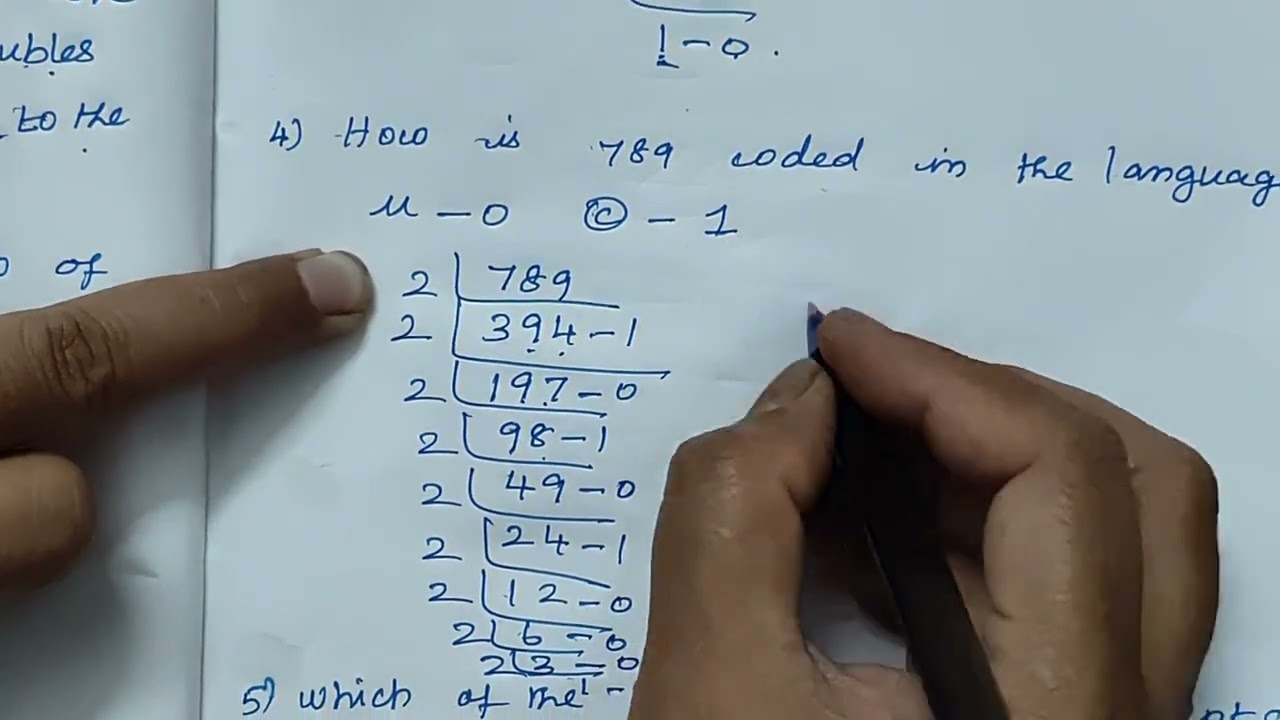 ubles
to the
of
1 - 0.
4) How is 789 coded in the languag
μ - 0 © - 1
2 | 789
2 | 394 - 1
2 | 197 - 0
2 | 98 - 1
2 | 49 - 0
2 | 24 - 1
2 | 12 - 0
2 | 6 - 0
2 | 3 - 0
1 -
5) which of the